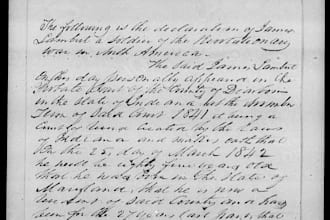 The following is the declaration of James
Lambert a Soldier of the Revolutionary
war in North America.
The Said James Lambert
On this day personally appeared in the
Probate Court of the County of Dearborn
in the State of Indiana at the November
Term of Said Court 1841 it being a
Court of record created by the Laws
of Indiana and maketh oath that
On the 25 day of March 1842
he will be eighty five years old
that he was born in the State of
Maryland, that he is now a
resident of Said County and has
been for the 27 years last past, that